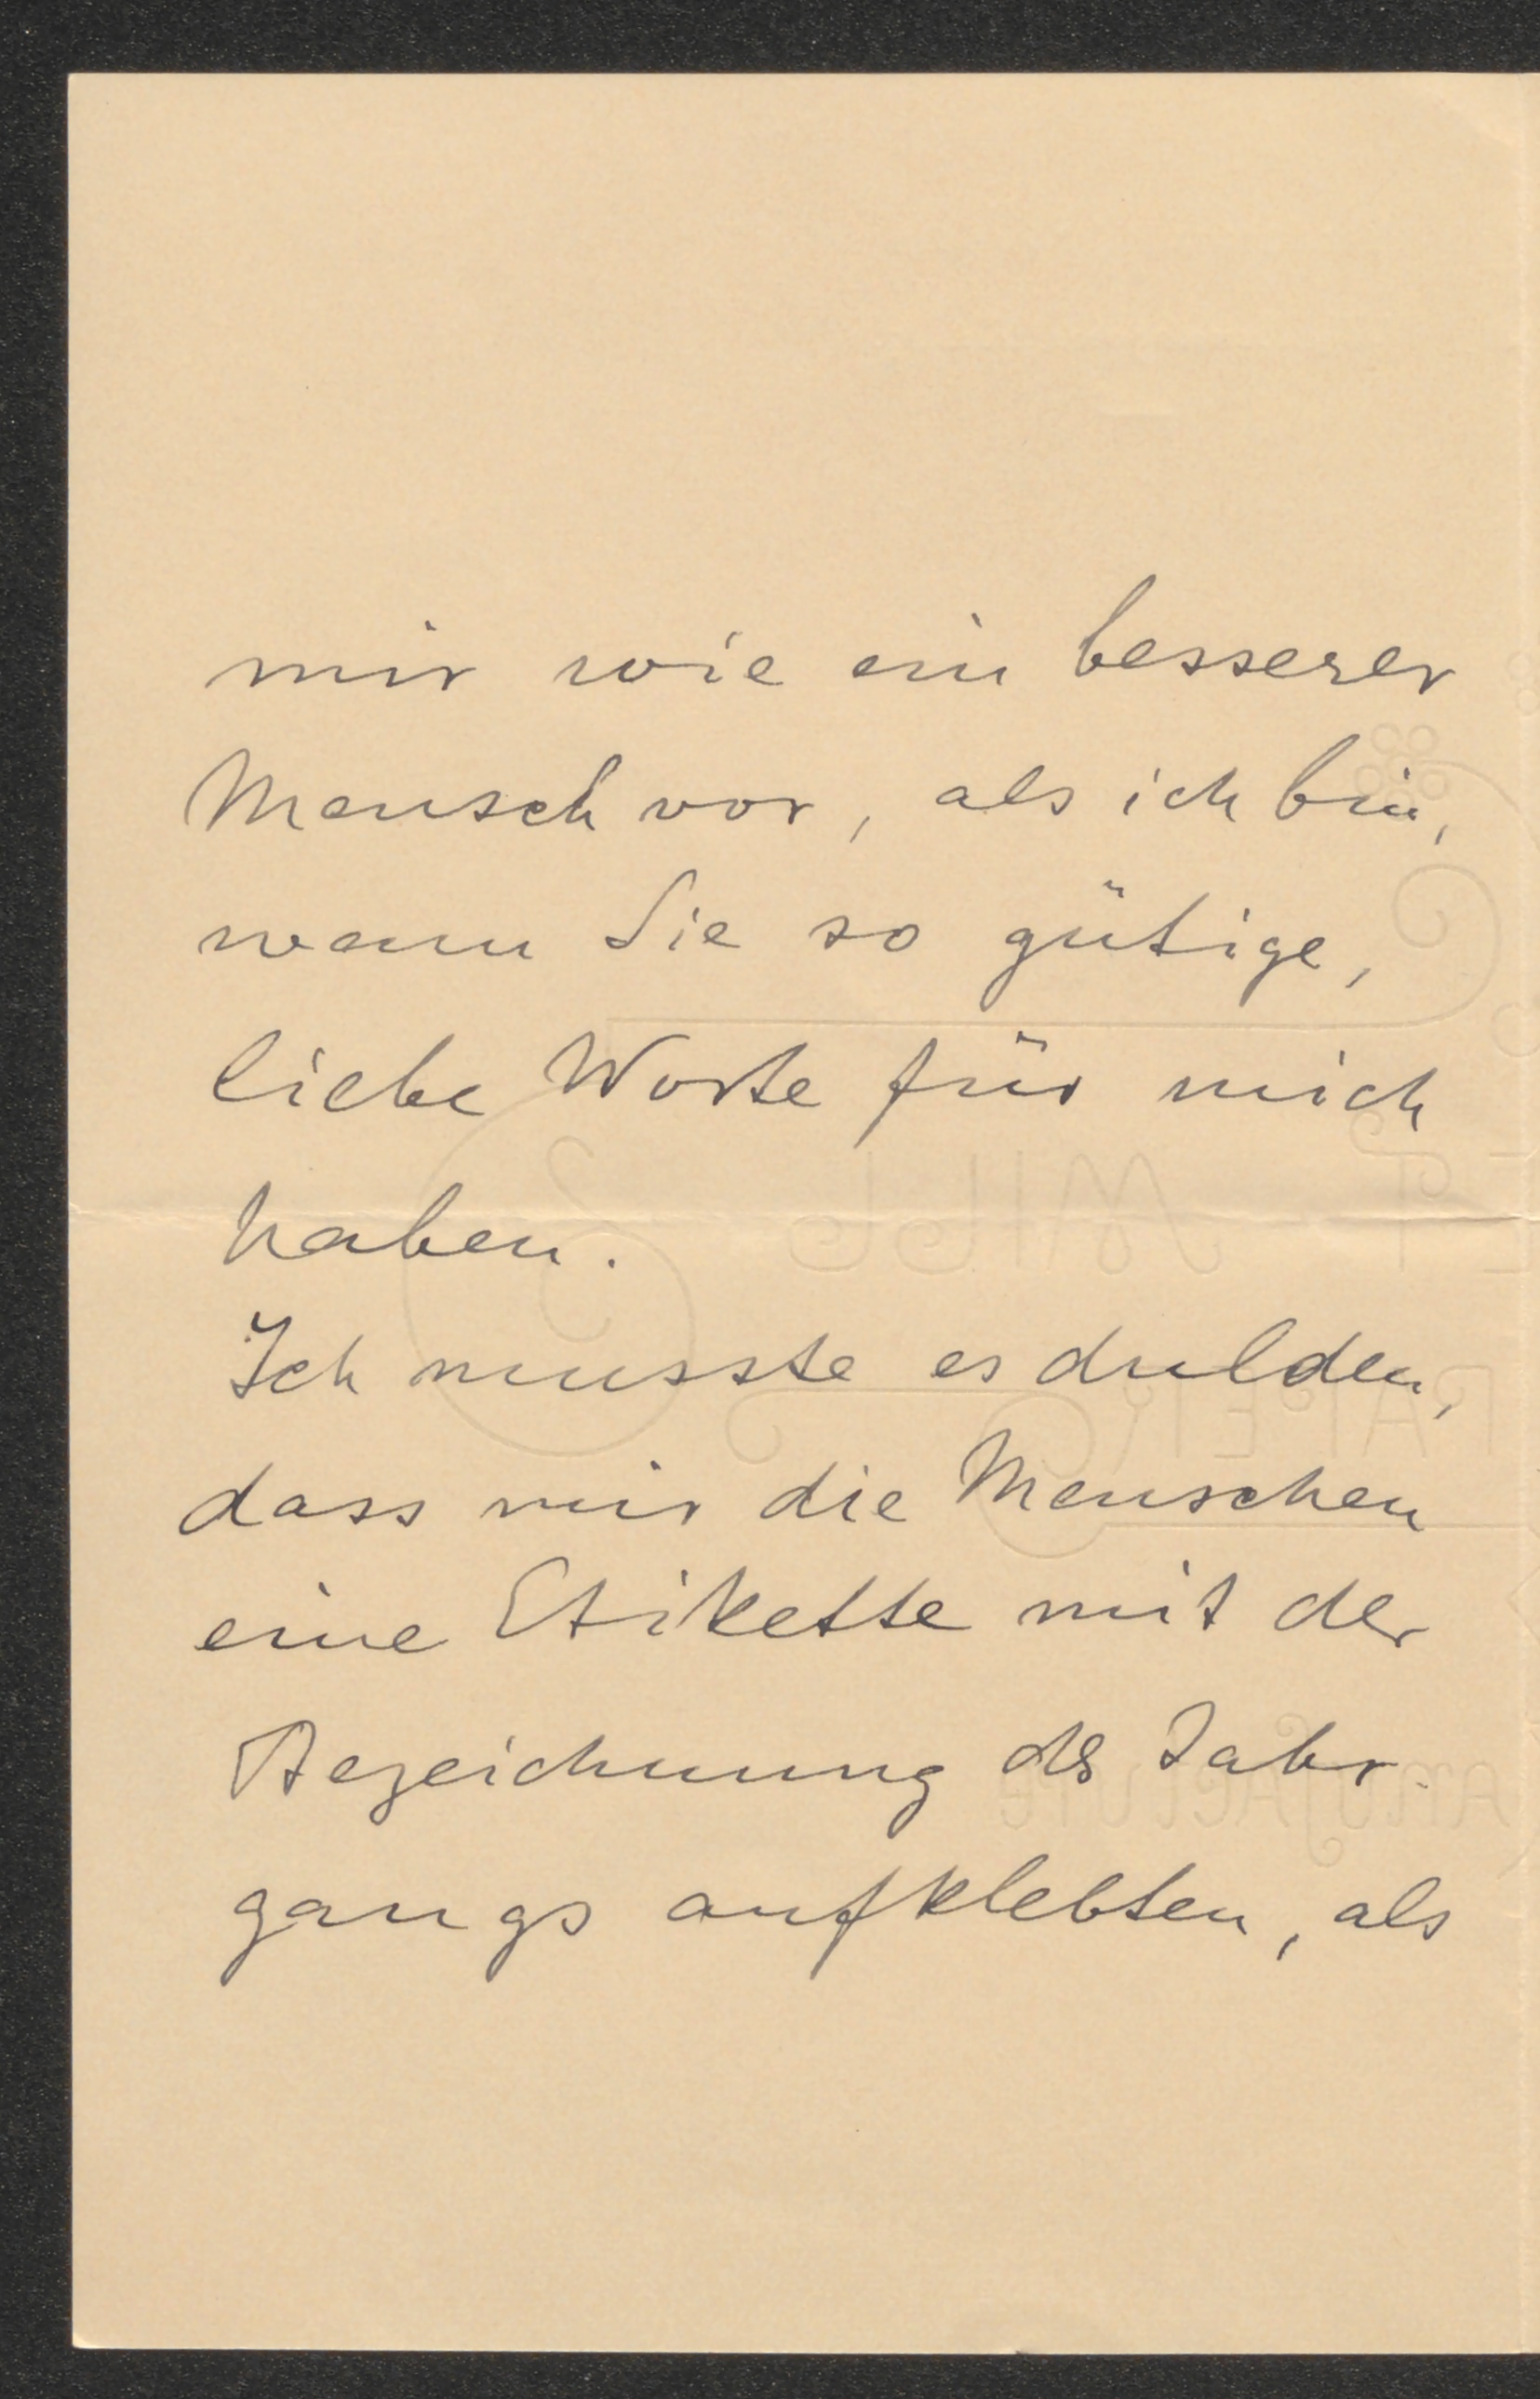 mir wie ein besserer
Mensch vor, als ich bin,
wenn Sie so gütige,
liebe Worte für mich
haben.
Ich musste es dulden,
dass mir die Menschen
eine Etikette mit der
Bezeichnung des Jahr-
gangs aufklebten, als